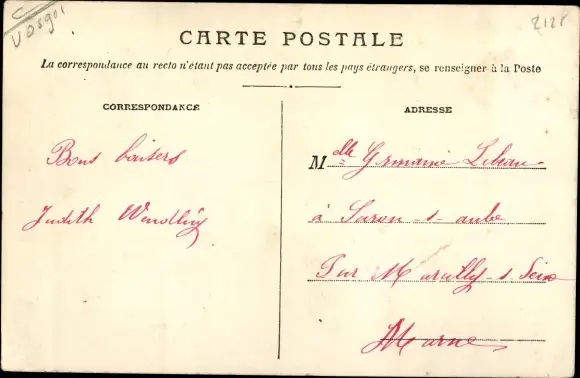 Vosges
2128
CARTE POSTALE
La correspondance au recto n'étant pas acceptée par tous les pays étrangers, se renseigner à la Poste
CORRESPONDANCE
Bons baisers
Judith Wendling
ADRESSE
Mdlle Germaine
à Saron-s-aube
Par Marcilly-s. Seine
Marne